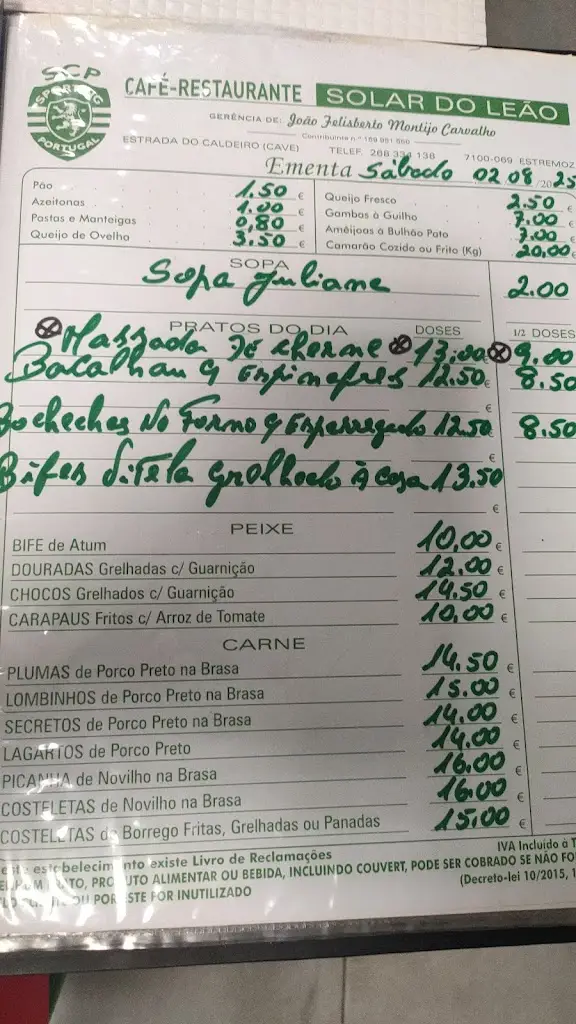 SCP
SPORTING
PORTUGAL
CAFÉ-RESTAURANTE SOLAR DO LEÃO
GERÊNCIA DE: João Felisberto Montijo Carvalho
Contribuinte n.º 159 951 550
ESTRADA DO CALDEIRO (CAVE) TELEF. 268 334 136 7100-069 ESTREMOZ
Ementa Sábado 02 08/2025
Pão 1.50 €
Azeitonas 1.00 €
Pastas e Manteigas 0,80 €
Queijo de Ovelha 3.50 €
Queijo Fresco 2.50 €
Gambas à Guilho 7.00 €
Amêijoas à Bulhão Pato 7.00 €
Camarão Cozido ou Frito (Kg) 20,00 €
SOPA
Sopa Juliane 2.00
PRATOS DO DIA DOSES 1/2 DOSES
Massada de cherne 13,00 € 9.00
Bacalhau c/ Espinafres 12.50 € 8.50
€
Bochechas No Forno c/ Esparregado 12.50 8.50
Bifes Vitela Grelhado à casa 13.50
€
PEIXE
BIFE de Atum 10,00 €
DOURADAS Grelhadas c/ Guarnição 12.00 €
CHOCOS Grelhados c/ Guarnição 14.50 €
CARAPAUS Fritos c/ Arroz de Tomate 10,00 €
CARNE
PLUMAS de Porco Preto na Brasa 14.50 €
LOMBINHOS de Porco Preto na Brasa 15.00 €
SECRETOS de Porco Preto na Brasa 14.00 €
LAGARTOS de Porco Preto 14.00 €
PICANHA de Novilho na Brasa 16.00 €
COSTELETAS de Novilho na Brasa 16.00 €
COSTELETAS de Borrego Fritas, Grelhadas ou Panadas 15.00 €
IVA Incluído à
este estabelecimento existe Livro de Reclamações
PRATO, PRODUTO ALIMENTAR OU BEBIDA, INCLUINDO COUVERT, PODE SER COBRADO SE NÃO FO
OU POR ESTE FOR INUTILIZADO (Decreto-lei 10/2015, 1